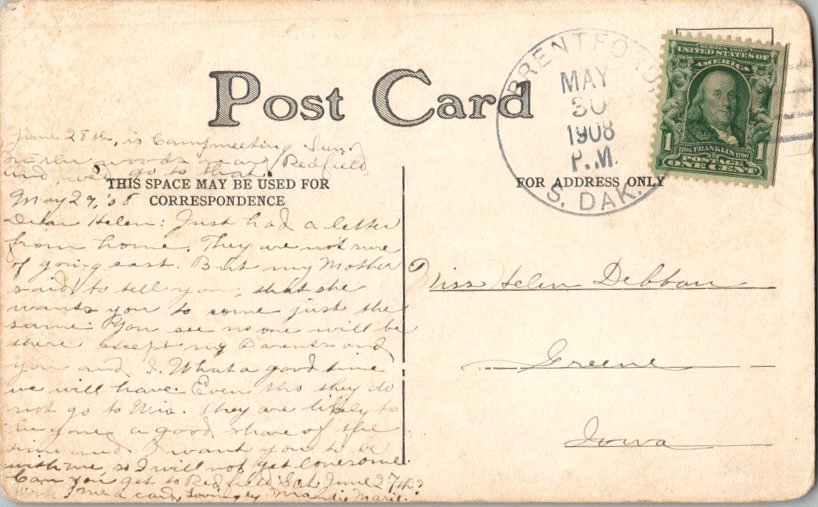 Post Card
THIS SPACE MAY BE USED FOR
CORRESPONDENCE
FOR ADDRESS ONLY
BRENTFORD,
MAY
30
1908
P.M.
S. DAK.
SERIES 1902
UNITED STATES OF
AMERICA
1 FRANKLIN 1
POSTAGE
ONE CENT
June 28th, is Campmeeting Sun.
in the woods near Redfield
and will go to that.
May 29, '08
Dear Helen: Just had a letter
from home. They are not sure
of going east. But my Mother
said to tell you, that she
wants you to come just the
same. You see no one will be
there except my Parents and
you and I. What a good time
we will have. Even tho they do
not go to Wis. they are likely to
be gone a good share of the
time and I want you to be
with me, so I will not get lonesome.
Can you get to Redfield Sat. June 27th?
me a card, Lovingly Marie.
Miss Helen Debban
Greene
Iowa